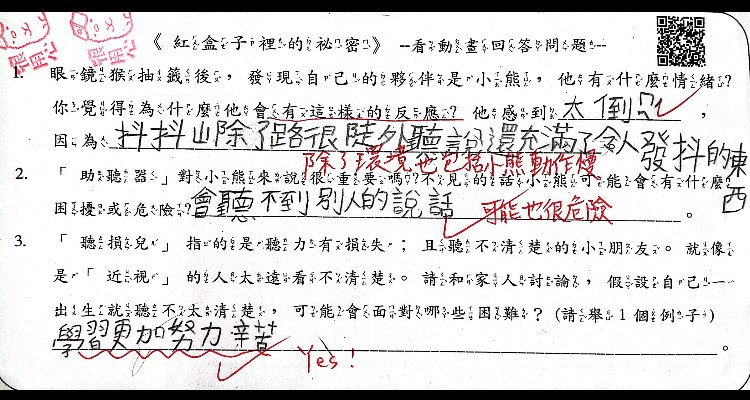 《紅盒子裡的祕密》--看動畫回答問題--
很用心
很用心
1. 眼鏡猴抽籤後，發現自己的夥伴是小熊，他有什麼情緒?
你覺得為什麼他會有這樣的反應? 他感到 太倒 ，
因為 抖抖山除了路很陡外聽說還充滿了令人發抖的東西
除了環境也包括小熊動作慢
2. 「助聽器」對小熊來說很重要嗎??不見的話小熊可能會有什麼
困擾或危險? 會聽不到別人的說話 。
可能也很危險
3. 「聽損兒」指的是聽力有損失；且聽不清楚的小朋友。就像
是「近視」的人太遠看不清楚。請和家人討論，假設自己一
出生就聽不太清楚，可能會面對哪些困難?(請舉1個例子)
學習更加努力辛苦 。
Yes!